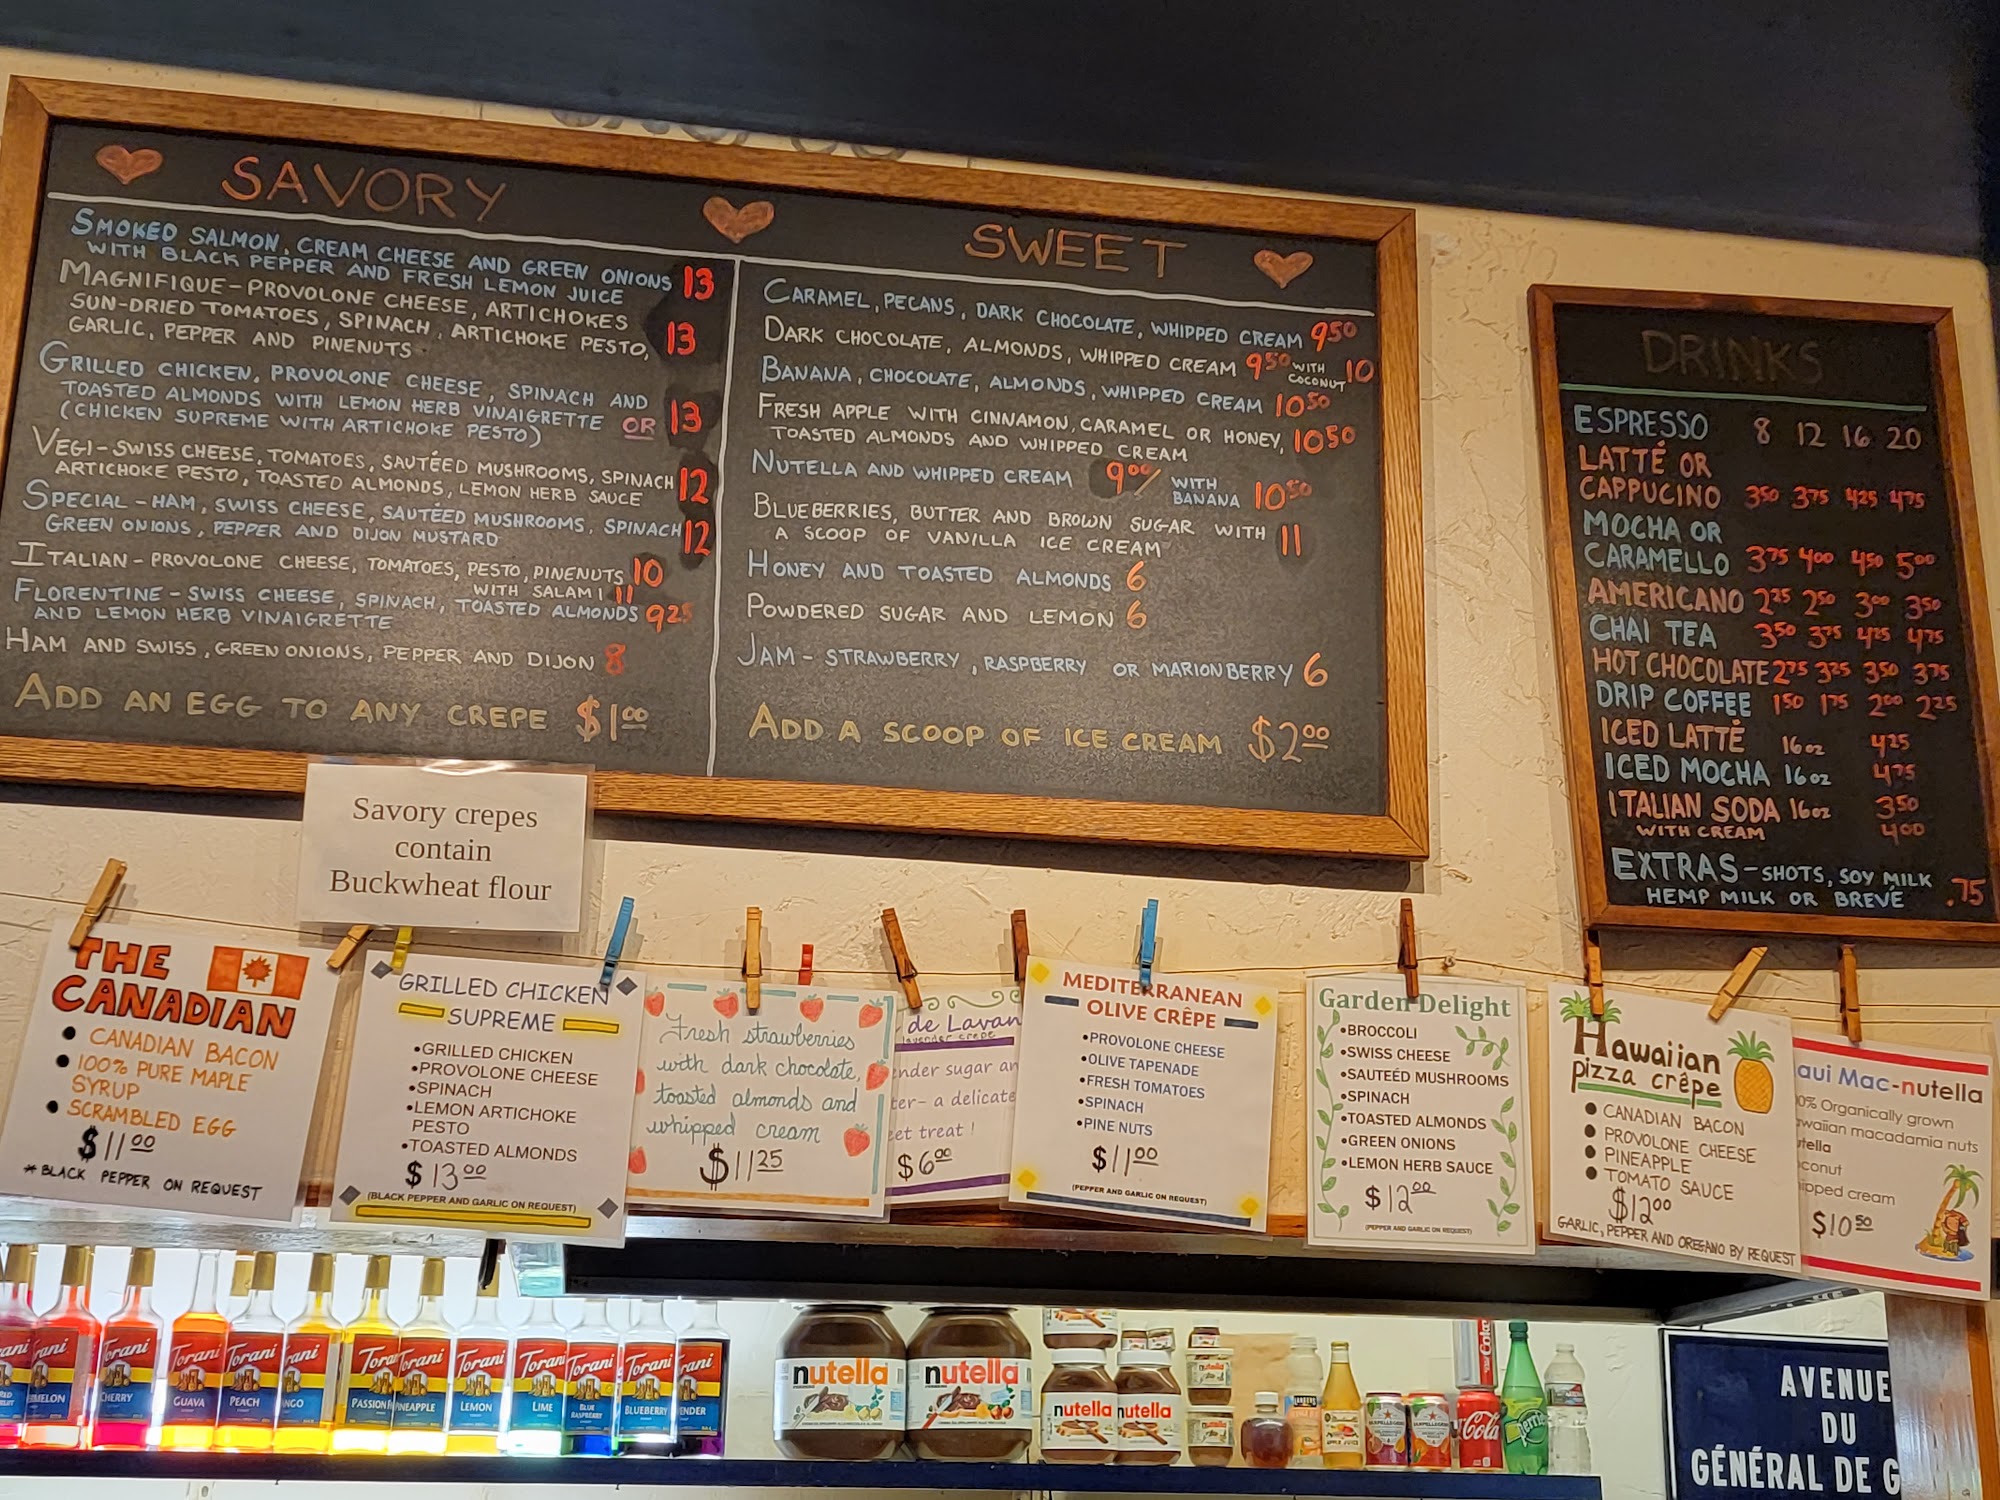 SAVORY
SMOKED SALMON, CREAM CHEESE AND GREEN ONIONS
WITH BLACK PEPPER AND FRESH LEMON JUICE 13
MAGNIFIQUE - PROVOLONE CHEESE, ARTICHOKES
SUN-DRIED TOMATOES, SPINACH, ARTICHOKE PESTO,
GARLIC, PEPPER AND PINENUTS 13
GRILLED CHICKEN, PROVOLONE CHEESE, SPINACH AND
TOASTED ALMONDS WITH LEMON HERB VINAIGRETTE OR 13
(CHICKEN SUPREME WITH ARTICHOKE PESTO)
VEGI - SWISS CHEESE, TOMATOES, SAUTÉED MUSHROOMS, SPINACH
ARTICHOKE PESTO, TOASTED ALMONDS, LEMON HERB SAUCE 12
SPECIAL - HAM, SWISS CHEESE, SAUTÉED MUSHROOMS, SPINACH
GREEN ONIONS, PEPPER AND DIJON MUSTARD 12
ITALIAN - PROVOLONE CHEESE, TOMATOES, PESTO, PINENUTS 10
WITH SALAMI 11
FLORENTINE - SWISS CHEESE, SPINACH, TOASTED ALMONDS 925
AND LEMON HERB VINAIGRETTE
HAM AND SWISS, GREEN ONIONS, PEPPER AND DIJON 8
ADD AN EGG TO ANY CREPE $1.00
SWEET
CARAMEL, PECANS, DARK CHOCOLATE, WHIPPED CREAM 950
DARK CHOCOLATE, ALMONDS, WHIPPED CREAM 950 WITH COCONUT 10
BANANA, CHOCOLATE, ALMONDS, WHIPPED CREAM 1050
FRESH APPLE WITH CINNAMON, CARAMEL OR HONEY,
TOASTED ALMONDS AND WHIPPED CREAM 1050
NUTELLA AND WHIPPED CREAM 900/ WITH BANANA 1050
BLUEBERRIES, BUTTER AND BROWN SUGAR WITH
A SCOOP OF VANILLA ICE CREAM 11
HONEY AND TOASTED ALMONDS 6
POWDERED SUGAR AND LEMON 6
JAM - STRAWBERRY, RASPBERRY OR MARIONBERRY 6
ADD A SCOOP OF ICE CREAM $2.00
DRINKS
ESPRESSO 8 12 16 20
LATTÉ OR
CAPPUCINO 350 375 425 475
MOCHA OR
CARAMELLO 375 400 450 500
AMERICANO 225 250 300 350
CHAI TEA 350 375 425 475
HOT CHOCOLATE 275 325 350 375
DRIP COFFEE 150 175 200 225
ICED LATTÉ 16oz 425
ICED MOCHA 16oz 475
ITALIAN SODA 16oz 350
WITH CREAM 400
EXTRAS - SHOTS, SOY MILK
HEMP MILK OR BREVÉ .75
Savory crepes
contain
Buckwheat flour
THE
CANADIAN
• CANADIAN BACON
• 100% PURE MAPLE
SYRUP
• SCRAMBLED EGG
$11.00
*BLACK PEPPER ON REQUEST
GRILLED CHICKEN
SUPREME
•GRILLED CHICKEN
•PROVOLONE CHEESE
•SPINACH
•LEMON ARTICHOKE
PESTO
•TOASTED ALMONDS
$13.00
(BLACK PEPPER AND GARLIC ON REQUEST)
Fresh strawberries
with dark chocolate,
toasted almonds and
whipped cream
$11.25
de Lavan
lavender crepe
nder sugar an
ter- a delicate
eet treat!
$6.00
MEDITERRANEAN
OLIVE CRÊPE
•PROVOLONE CHEESE
•OLIVE TAPENADE
•FRESH TOMATOES
•SPINACH
•PINE NUTS
$11.00
(PEPPER AND GARLIC ON REQUEST)
Garden Delight
•BROCCOLI
•SWISS CHEESE
•SAUTEÉD MUSHROOMS
•SPINACH
•TOASTED ALMONDS
•GREEN ONIONS
•LEMON HERB SAUCE
$12.00
(PEPPER AND GARLIC ON REQUEST)
Hawaiian
pizza crêpe
• CANADIAN BACON
• PROVOLONE CHEESE
• PINEAPPLE
• TOMATO SAUCE
$12.00
GARLIC, PEPPER AND OREGANO BY REQUEST
aui Mac-nutella
00% Organically grown
waiian macadamia nuts
utella
oconut
ipped cream
$10.50
Torani MELON
Torani CHERRY
Torani GUAVA
Torani PEACH
Torani NGO
Torani PASSION
Torani PINEAPPLE
Torani LEMON
Torani LIME
Torani BLUE RASPBERRY
Torani BLUEBERRY
rani ENDER
nutella
nutella
nutella
nutella
Coca-Cola
Perrier
AVENUE
DU
GÉNÉRAL DE G